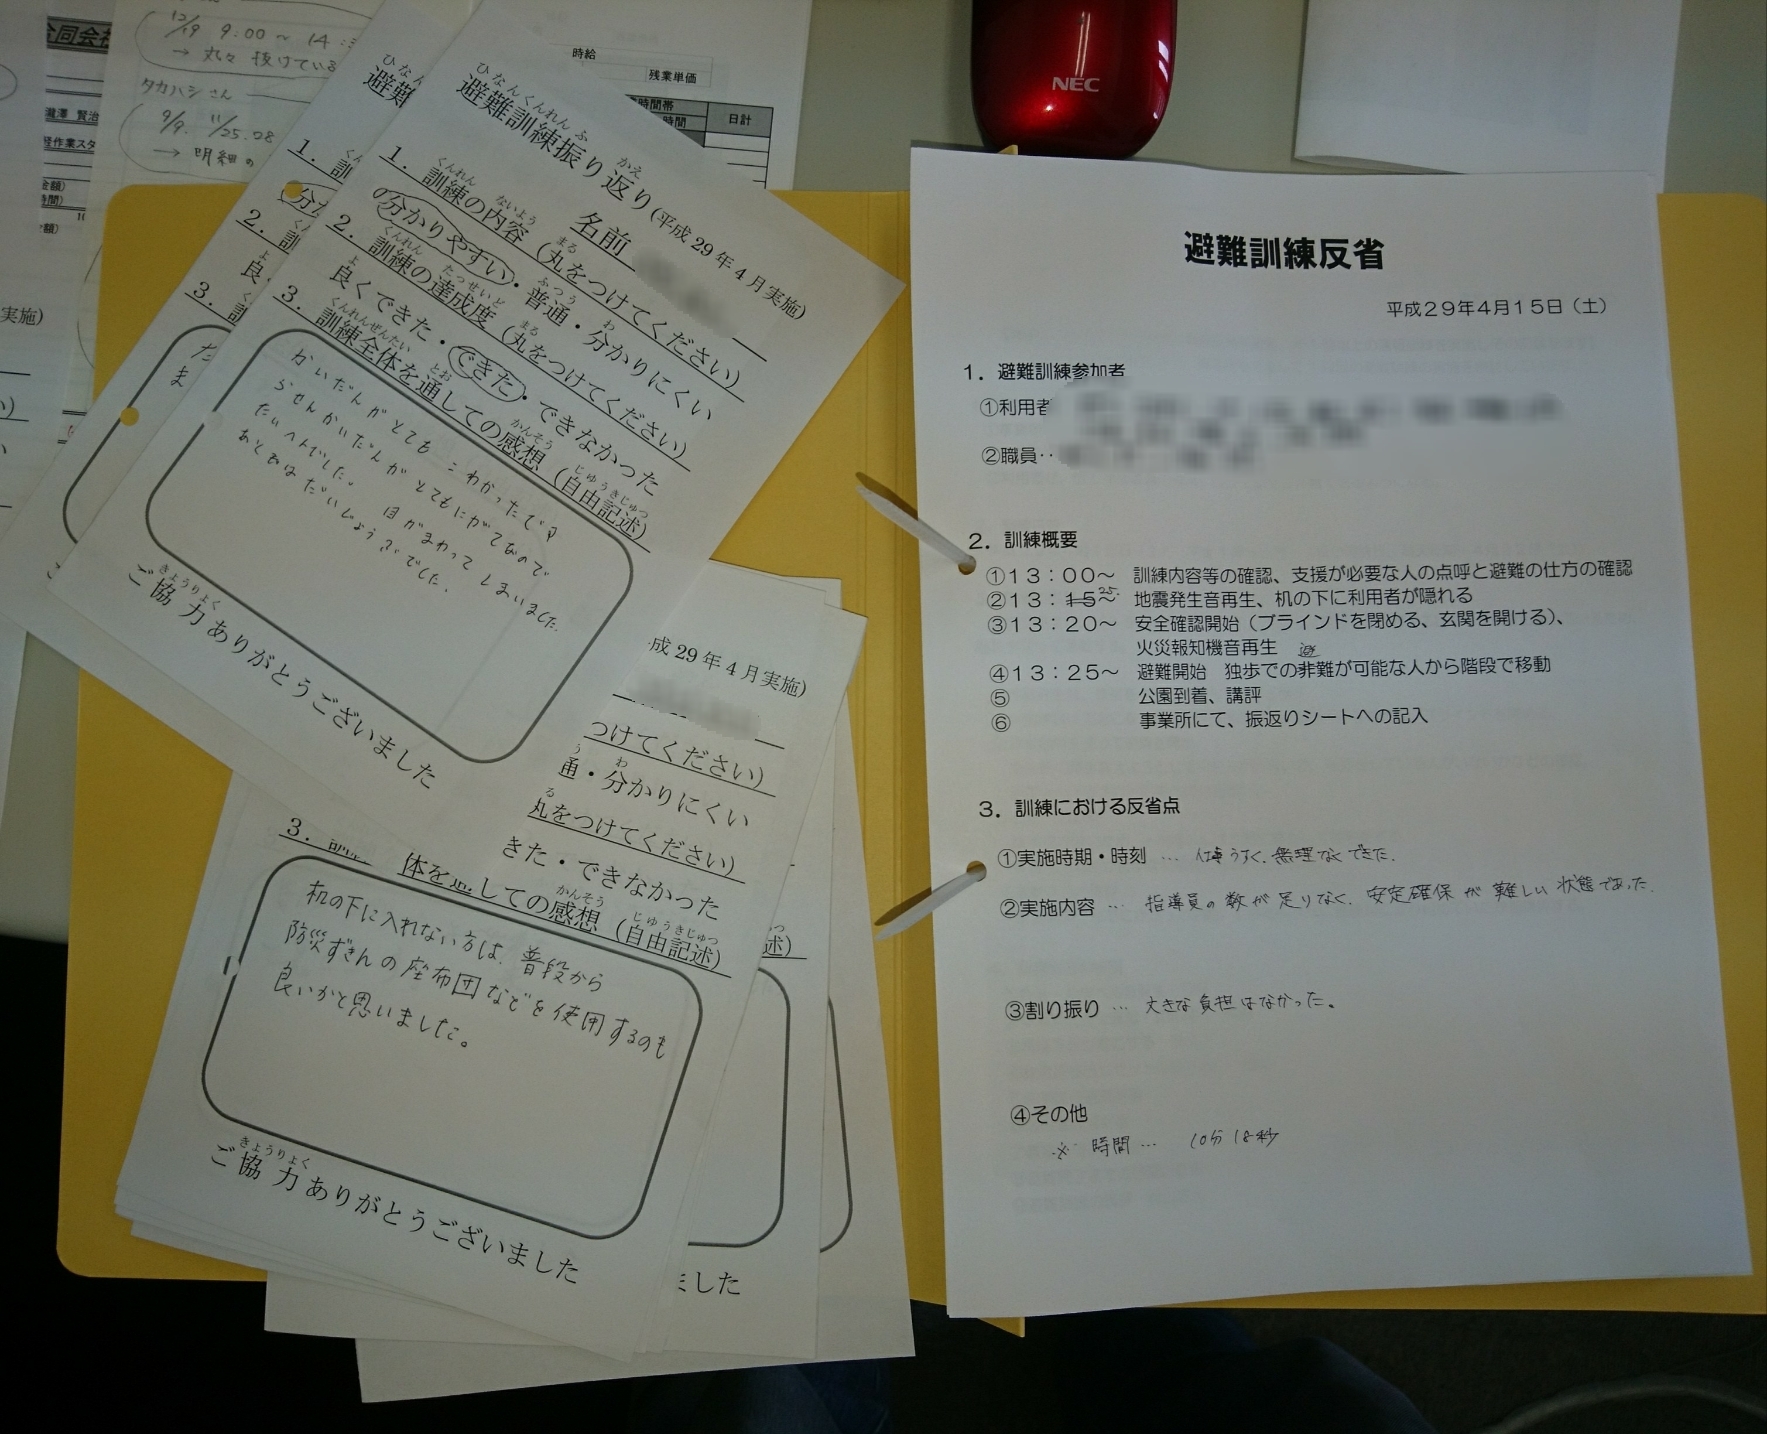 12/19 9:00～14:3
→ 丸々 抜けている
タカハシさん
9/9. 11/25.28
→ 明細の
合同会社
瀧澤 賢治
軽作業スタ
金額)
時間)
額)
実施)
時給
残業単価
時間帯
日計
時間
NEC
ひなん
避難
1.
2.
3.
ひなんくんれんふ かえ
避難訓練振り返り(平成29年4月実施)
名前
くんれん ないよう まる
1. 訓練の内容 (丸をつけてください)
ふつう わ
の分かりやすい・普通・分かりにくい
くんれん たっせいど まる
2. 訓練の達成度 (丸をつけてください)
よ
良くできた・できた・できなかった
くんれんぜんたい とお かんそう じゆうきじゅつ
3. 訓練全体を通しての感想 (自由記述)
かいだんがとても こわかったです
らせんかいだんが とてもにがてなので
たいへんでした。 目がまわって しまいました.
あとはは だいじょうぶでした.
きょうりょく
ご協力ありがとうございました
成29年4月実施)
つけてください)
う わ
通・分かりにくい
る
丸をつけてください)
きた・できなかった
かんそう じゆうきじゅつ
3. 体を しての感想 (自由記述)
机の下に入れない方は、普段から
防災ずきんの座布団などを使用するのも
良いかと思いました。
きょうりょく
ご協力ありがとうございました
述)
ました
避難訓練反省
平成29年4月15日(土)
1. 避難訓練参加者
①利用者
②職員‥
2. 訓練概要
①13:00～ 訓練内容等の確認、支援が必要な人の点呼と避難の仕方の確認
25
②13:15～ 地震発生音再生、机の下に利用者が隠れる
③13:20～ 安全確認開始(ブラインドを閉める、玄関を開ける)、
火災報知機音再生 避
④13:25～ 避難開始 独歩での非難が可能な人から階段で移動
⑤ 公園到着、講評
⑥ 事業所にて、振返りシートへの記入
3. 訓練における反省点
①実施時期・時刻 … 仕事うすく、無理なくできた.
②実施内容 … 指導員の数が足りなく、安定確保が難しい状態であった.
③割り振り … 大きな負担はなかった。
④その他
※ 時間 … 10分18秒